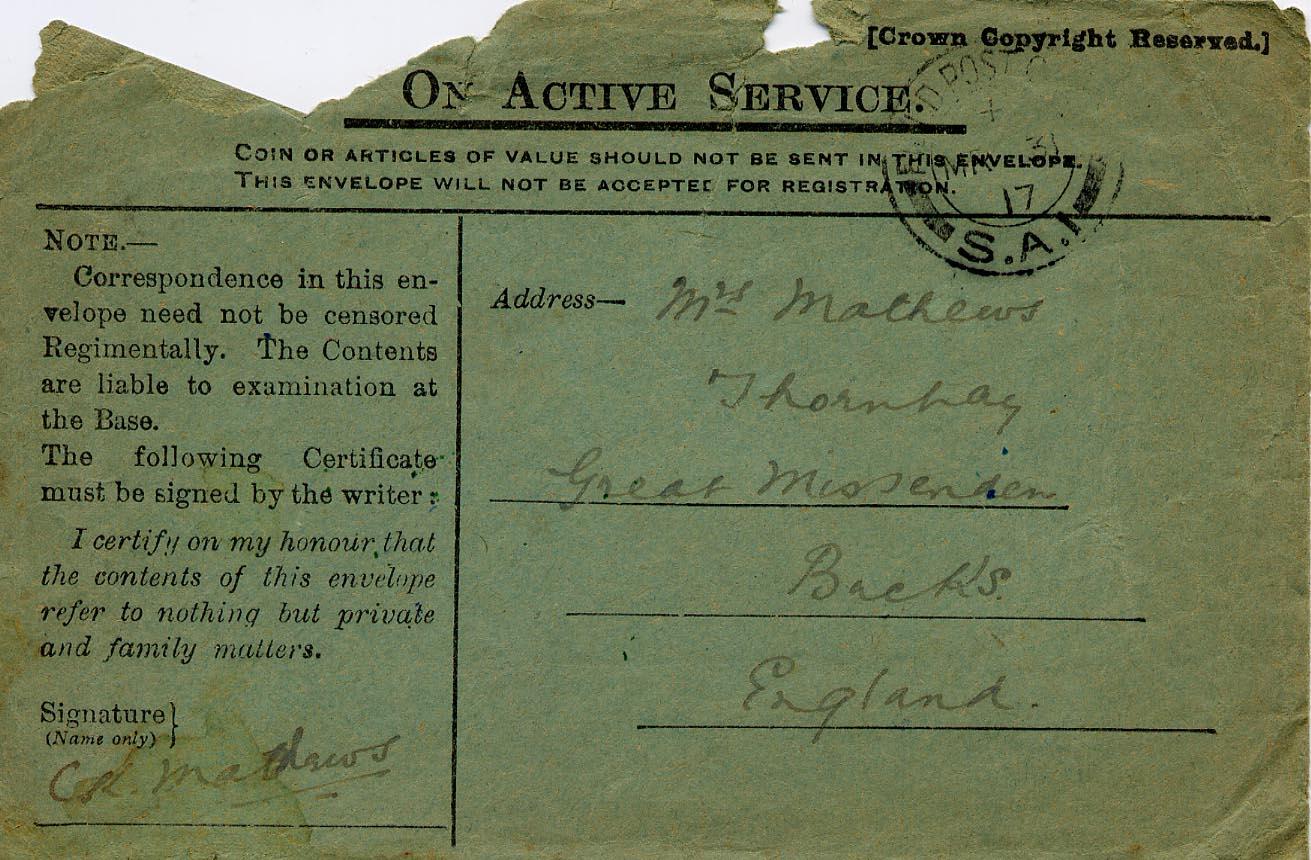 [Crown Copyright Reserved.]
ON ACTIVE SERVICE.
COIN OR ARTICLES OF VALUE SHOULD NOT BE SENT IN THIS ENVELOPE.
THIS ENVELOPE WILL NOT BE ACCEPTED FOR REGISTRATION.
D POST O
MR 31
17
S.A.1
NOTE.—
Correspondence in this en-
velope need not be censored
Regimentally. The Contents
are liable to examination at
the Base.
The following Certificate
must be signed by the writer:
I certify on my honour that
the contents of this envelope
refer to nothing but private
and family matters.
Signature}
(Name only)
Mathews
Address— Mrs Mathews
Great Missenden
Bucks.
England.